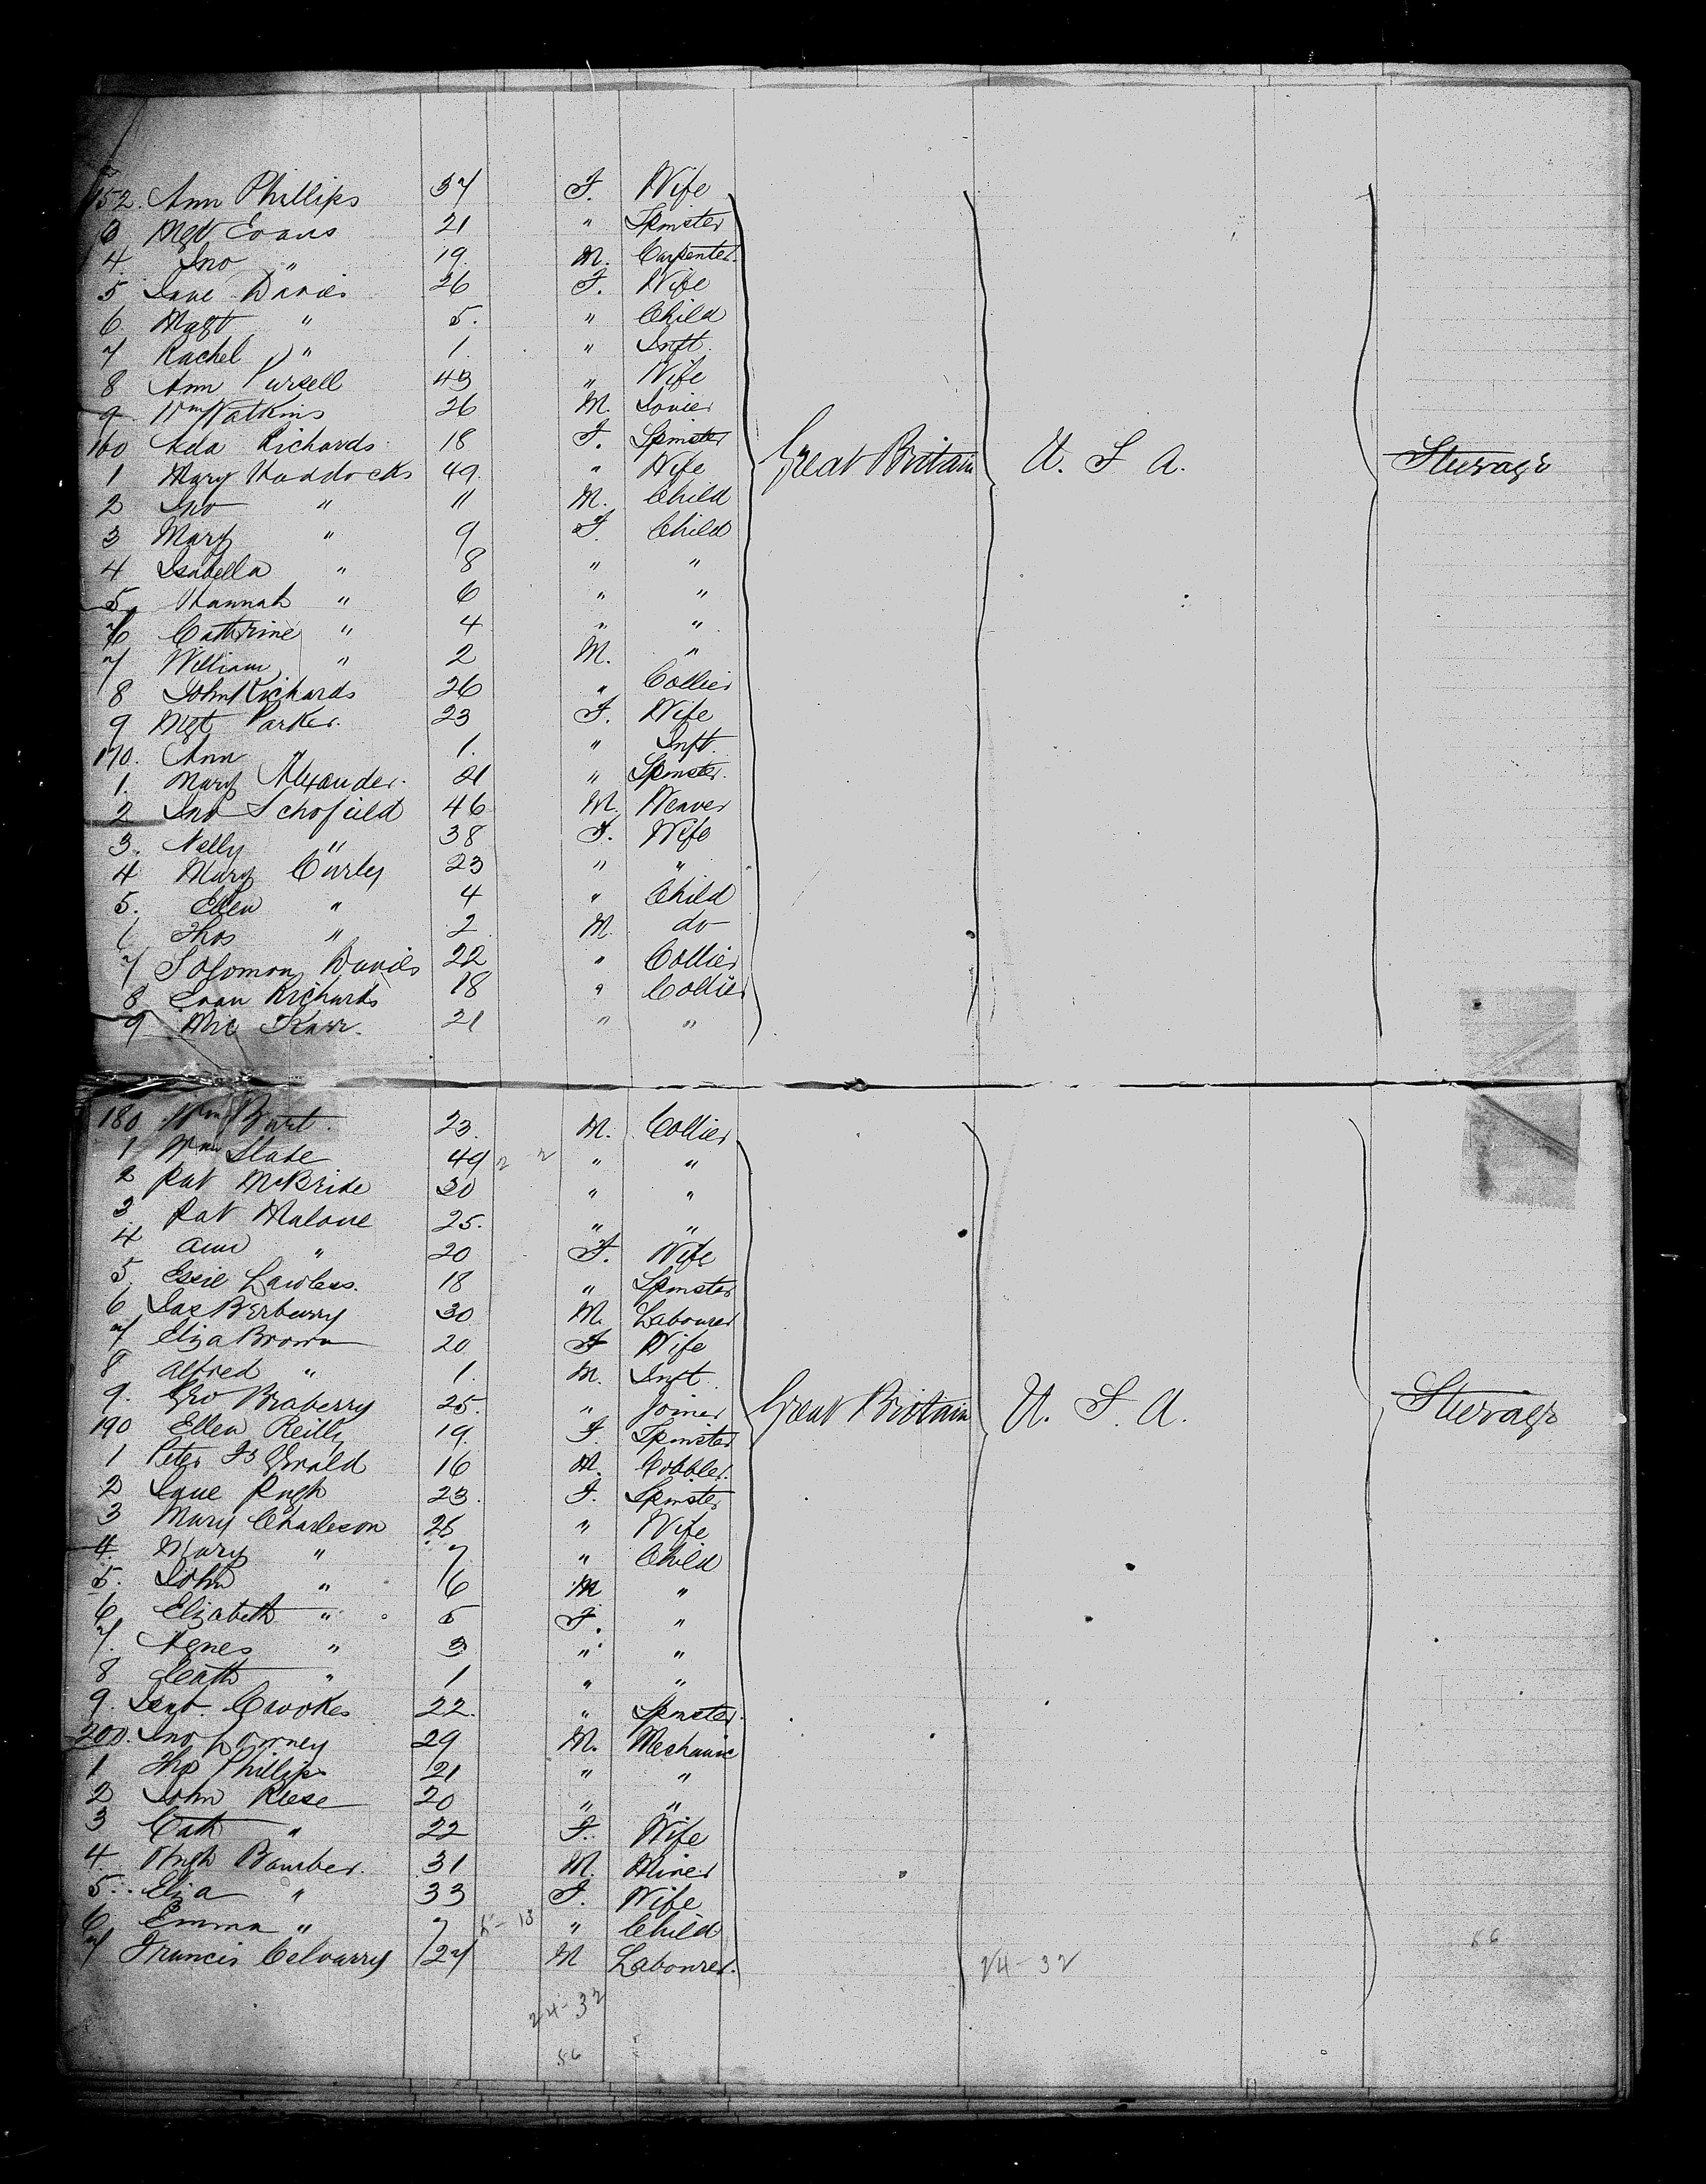 152. Ann Phillips 37 F. Wife
3 Mgt Evans 21 " Spinster
4. Jno " 19. M. Carpenter.
5 Jane Davies 26 F. Wife
6. Magt " 5. " Child
7 Rachel " 1. " Inft.
8 Ann Pursell 43 " Wife
9 Wm Watkins 26 M. Joiner
160 Ada Richards 18 F. Spinster
1 Mary Haddocks 49. " Wife Great Britain U. S A. Steerage
2 Jno " 11 M. Child
3 Mary " 9 F. Child
4 Isabella " 8 " "
5. Hannah " 6 " "
6 Cathrine " 4 " "
7 William " 2 M. "
8 John Richards 26 " Collier
9 Mgt Parker. 23 F. Wife
170. Ann " 1. " Inft.
1. Mary Alexander. 21 " Spinster.
2 Jno Schofield 46 M. Weaver
3. Nelly " 38 F. Wife
4 Mary Curley 23 " "
5. Ellen " 4 " Child
6 Thos " 2 M. do
7 Solomon Davies 22 " Collier
8 Evan Richards 18 " Collier
9 Mic 21 " "
180 Wm 23. M. Collier
1 Wm Slate 49 " "
2 Pat McBride 30 " "
3 Pat Malone 25. " "
4 Ann " 20 F. Wife
5. Essie Lawless. 18 " Spinster
6 Jas Berberry 30 M. Labourer
7 Eliza Brown 20 F Wife
8 Alfred " 1. M. Inft.
9. Geo Braberry 25. " Joiner Great Britain U. S. A. Steerage
190 Ellen Reilly 19. F. Spinster
1 Peter Fs Gerald 16 M. Cobbler.
2 Jane Pugh 23. F. Spinster
3 Mary Charleson 26 " Wife
4. Mary " 7 " Child
5. John " 6 M "
6 Elizabeth " 5 F. "
7. Agnes " 3 " "
8 Cath " 1 " "
9. Crookes 22. " Spinster.
200. Jno 29 M. Mechanic
1 Tho Phillips 21 " "
2 John Reese 20 " "
3 Cath " 22 F. Wife
4. Hugh Bamber. 31 M. Miner
5. Eliza " 33 F. Wife
6. Emma " 7 " Child
7 Francis 27 M Labourer.
24-32
24-32
56
56